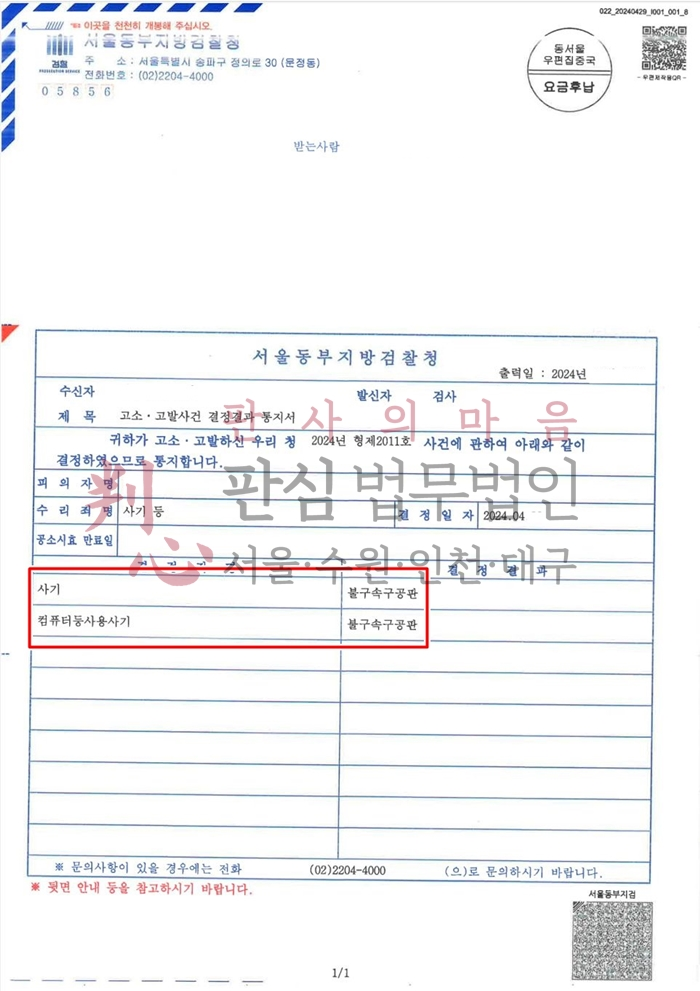 022_20240429_I001_001_8
☜ 이곳을 천천히 개봉해 주십시오.
서울동부지방검찰청
검찰
PROSECUTION SERVICE
주 소 : 서울특별시 송파구 정의로 30 (문정동)
전화번호 : (02)2204-4000
05856
동서울
우편집중국
요금후납
- 우편제작용QR -
받는사람
서울동부지방검찰청
출력일 : 2024년
수신자 발신자 검사
제 목 고소 · 고발사건 결정결과 통지서
판사의마음
귀하가 고소 · 고발하신 우리 청 2024년 형제2011호 사건에 관하여 아래와 같이
결정하였으므로 통지합니다.
피 의 자 명
判心 판심 법무법인
수 리 죄 명 사기 등 결 정 일 자 2024.04
공소시효 만료일
서울·수원·인천·대구
결 정 결 과
사기 불구속구공판
컴퓨터등사용사기 불구속구공판
※ 문의사항이 있을 경우에는 전화 (02)2204-4000 (으)로 문의하시기 바랍니다.
※ 뒷면 안내 등을 참고하시기 바랍니다.
서울동부지검
1/1